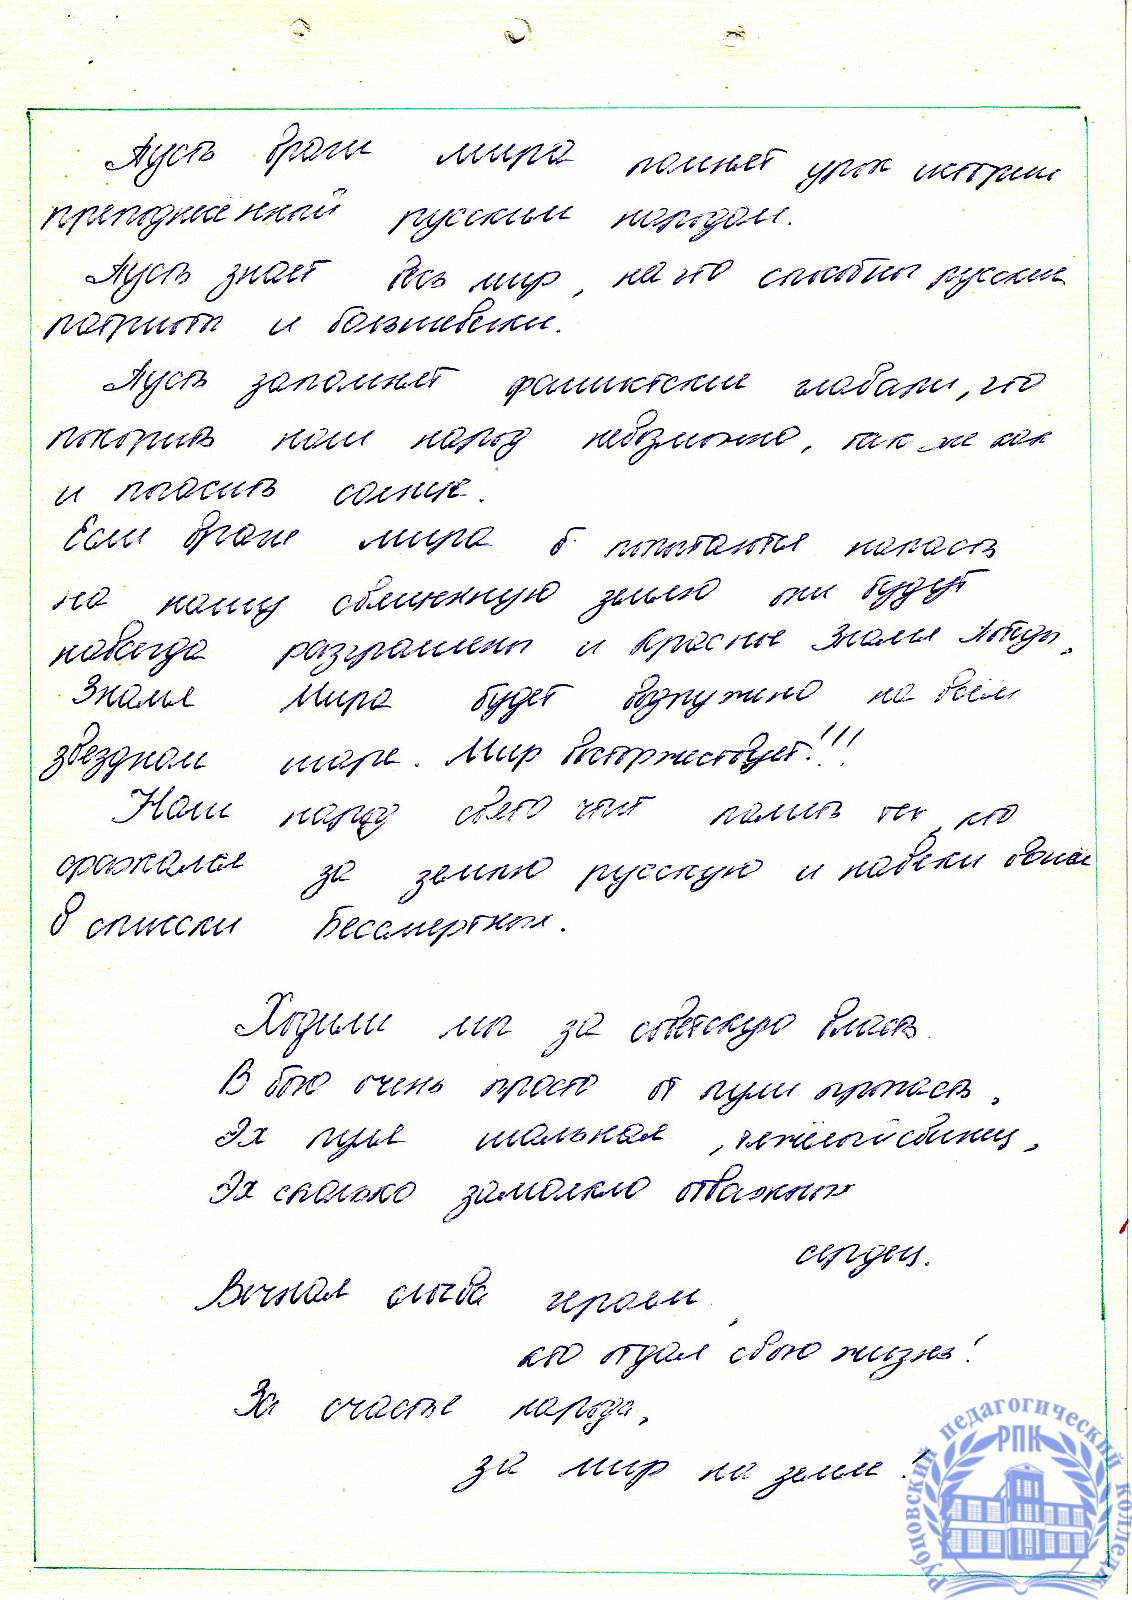 Пусть враги мира помнят урок истории
преподнесённый русским народом.
Пусть знает весь мир, на что способны русские
патриоты и большевики.
Пусть запомнят фашистские главари, что
покорить наш народ невозможно, так же как
и погасить солнце.
Если враги мира б. попытаются напасть
на нашу священную землю они будут
навсегда разгромлены и Красное Знамя Победы,
Знамя Мира будет водружено на всём
звездном шаре. Мир восторжествует!!!
Наш народ свято чтит память тех, кто
сражался за землю русскую и навеки вошёл
в списки Бессмертных.
Ходили мы за советскую власть.
В бою очень просто от пули пропасть,
Эх пуля шальная, тяжёлый свинец,
Эх сколько замолкло отважных
сердец.
Вечная слава героям,
кто отдал свою жизнь!
За счастье народа,
за мир на земле!
Рубцовский педагогический колледж
РПК